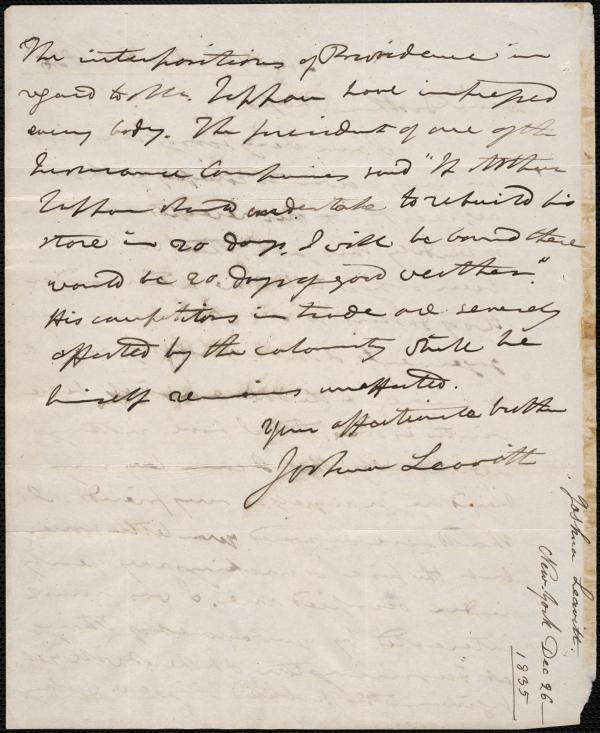 The interpositions of Providence in
regard to Mr. Tappan have impressed
every body. The president of one of the
Insurance Companies said "If Arthur
Tappan should undertake to rebuild his
store in 20 days, I will be bound there
would be 20 days of good weather."
His competitors in trade are severely
affected by the calamity while he
himself remains unaffected.
Your affectionate brother
Joshua Leavitt
Joshua Leavitt.
New-York Dec 26
1835